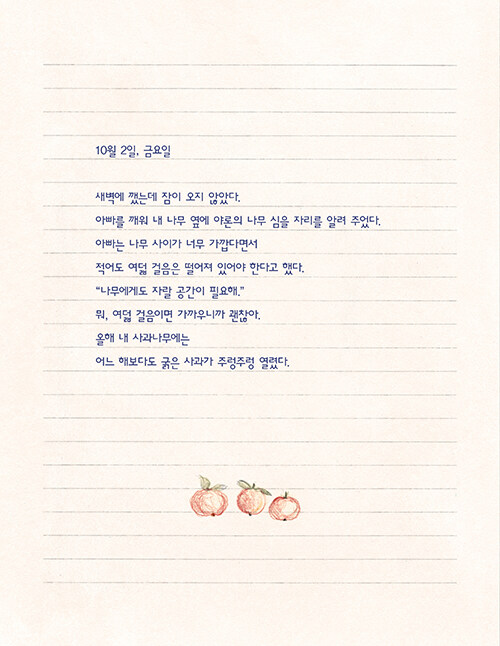 10월 2일, 금요일
새벽에 깼는데 잠이 오지 않았다.
아빠를 깨워 내 나무 옆에 야론의 나무 심을 자리를 알려 주었다.
아빠는 나무 사이가 너무 가깝다면서
적어도 여덟 걸음은 떨어져 있어야 한다고 했다.
“나무에게도 자랄 공간이 필요해.”
뭐, 여덟 걸음이면 가까우니까 괜찮아.
올해 내 사과나무에는
어느 해보다도 굵은 사과가 주렁주렁 열렸다.